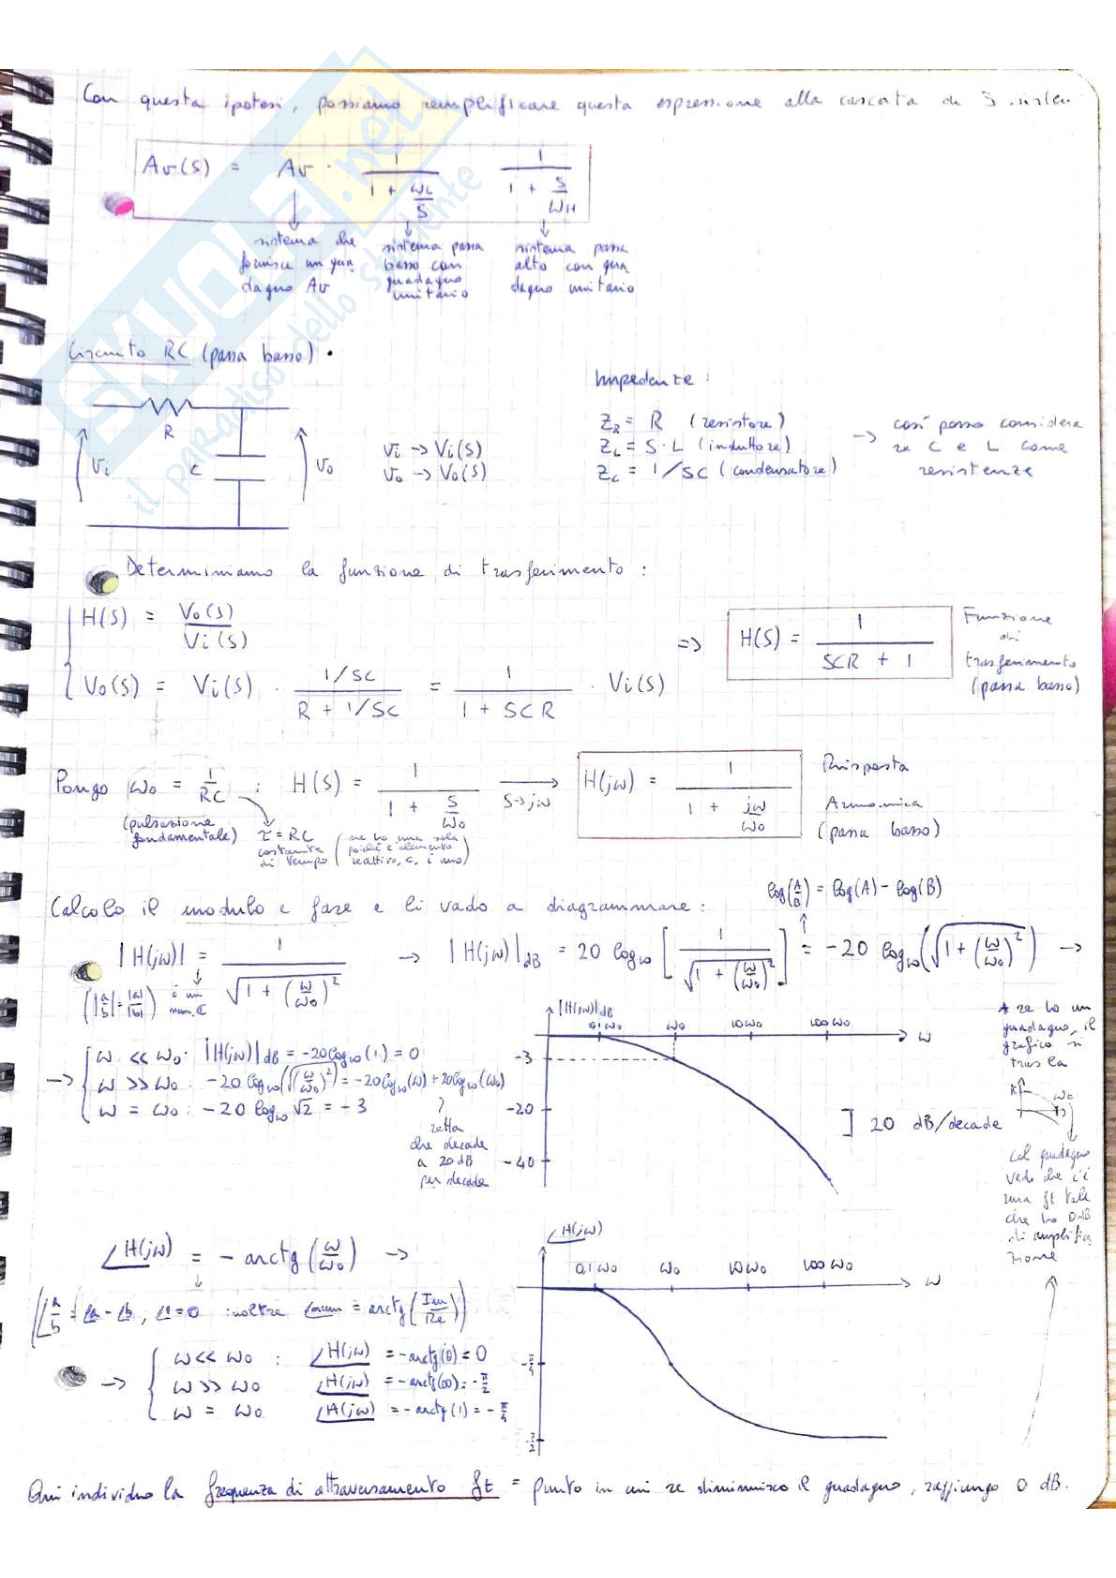 Con questa ipotesi, possiamo semplificare questa espressione alla cascata di 3 sistemi
Av(S) = Av · 1 / (1 + ωL/S) 1 / (1 + S/ωH)
sistema che fornisce un guadagno Av
sistema passa basso con guadagno unitario
sistema passa alto con guadagno unitario
SKUOLA.net
il paradiso dello studente
Circuito RC (passa basso) •
R
Vi
C
Vo
Vi -> Vi(S)
Vo -> Vo(S)
Impedenze :
ZR = R (resistore)
ZL = S · L (induttore)
Zc = 1/SC (condensatore)
-> così posso considerare C e L come resistenze
Determiniamo la funzione di trasferimento :
H(S) = Vo(S) / Vi(S)
Vo(S) = Vi(S) · (1/SC) / (R + 1/SC) = 1 / (1 + SCR) · Vi(S)
=> H(S) = 1 / (SCR + 1)
Funzione di trasferimento (passa basso)
Pongo ω0 = 1/RC : H(S) = 1 / (1 + S/ω0) S->jω H(jω) = 1 / (1 + jω/ω0)
Risposta Armonica (passa basso)
(pulsazione fondamentale)
τ = RC
costante di tempo (ne ho una sola poichè l'elemento reattivo, C, è uno)
Calcolo il modulo e fase e li vado a diagrammare :
log(A/B) = log(A) - log(B)
|H(jω)| = 1 / √(1 + (ω/ω0)²) -> |H(jω)|dB = 20 log10 [1 / √(1 + (ω/ω0)²)] = -20 log10 (√(1 + (ω/ω0)²)) ->
(|a/b| = |a|/|b|) è un num. C
-> ω << ω0 : |H(jω)|dB = -20 log10 (1) = 0
ω >> ω0 : -20 log10 (√(ω/ω0)²) = -20 log10 (ω) + 20 log10 (ω0)
ω = ω0 : -20 log10 √2 = -3
retta che decade a 20 dB per decade
|H(jω)|dB
0,1 ω0 ω0 10 ω0 100 ω0 ω
-3
-20
-40
] 20 dB/decade
se ho un guadagno, il grafico si trasla
K
ω0
col guadagno vedo che c'è una ft tale che ho 0 dB di amplificazione
∠H(jω) = - arctg (ω/ω0) ->
(∠a/b = ∠a - ∠b, ∠1 = 0 inoltre ∠num = arctg (Im/Re))
-> ω << ω0 : ∠H(jω) = -arctg(0) = 0
ω >> ω0 ∠H(jω) = -arctg(∞) = -π/2
ω = ω0 ∠H(jω) = -arctg (1) = -π/4
∠H(jω)
0,1 ω0 ω0 10 ω0 100 ω0 ω
-π/4
-π/2
Qui individuo la frequenza di attraversamento ft = punto in cui se diminuisco il guadagno, raggiungo 0 dB.